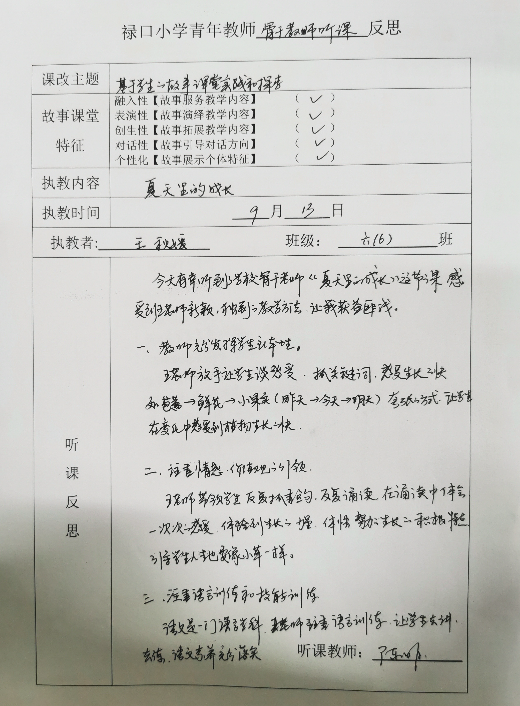 禄口小学青年教师 骨干教师听课 反思
课改主题 基于学生的故事课堂实践和探索
故事课堂特征
融入性【故事服务教学内容】 （ ✓ ）
表演性【故事演绎教学内容】 （ ✓ ）
创生性【故事拓展教学内容】 （ ✓ ）
对话性【故事引导对话方向】 （ ✓ ）
个性化【故事展示个体特征】 （ ✓ ）
执教内容 夏天里的成长
执教时间 9 月 13 日
执教者: 王 班级: 六(6) 班
听课反思
今天有幸听到学校骨干老师《夏天里的成长》这节课,感
受到王老师新颖、独到的教学方法,让我获益匪浅。
一、教师充分发挥学生主体性。
王老师放手让学生谈感受,抓关键词,感受生长之快
如 苞蕾→鲜花→小果实(昨天→今天→明天)
在变化中感受到植物生长之快。
二、注重情感、价值观的引领
王老师带领学生反复抓重点句,反复诵读,在诵读中体会
一次次感受,体验到生长之 ,体悟努力生长之积极
引导学生人生也要像小草一样。
三、注重语言训练和技能训练
语文是一门语言学科,王老师注重语言训练,让学生去讲,
去练,语文素养充分落实
听课教师: